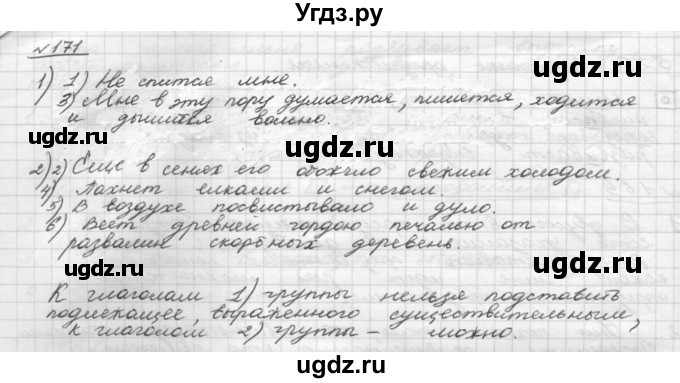 Угдз.ру
№171
1) 1) Не спится мне.
3) Мне в эту пору думается, пишется, ходится
и дышится вольно.
ugdz.ru ugdz.ru
2) 2) Еще в сенях его обожгло свежим холодом.
4) Пахнет елками и снегом.
5) В воздухе посвистывало и дуло.
6) Веет древней гордою печалью от
развалин скорбных деревень
ugdz.ru ugdz.ru
К глаголам 1) группы нельзя подставить
подлежащее, выраженного существительным,
к глаголом 2) группы – можно.
ugdz.ru ugdz.ru